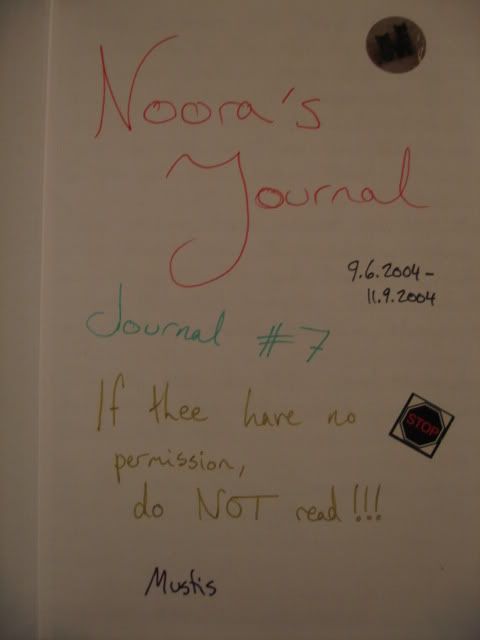 Noora's
Journal
9.6.2004 –
11.9.2004
Journal #7
If thee have no
STOP
permission,
do NOT read!!!
Mustis